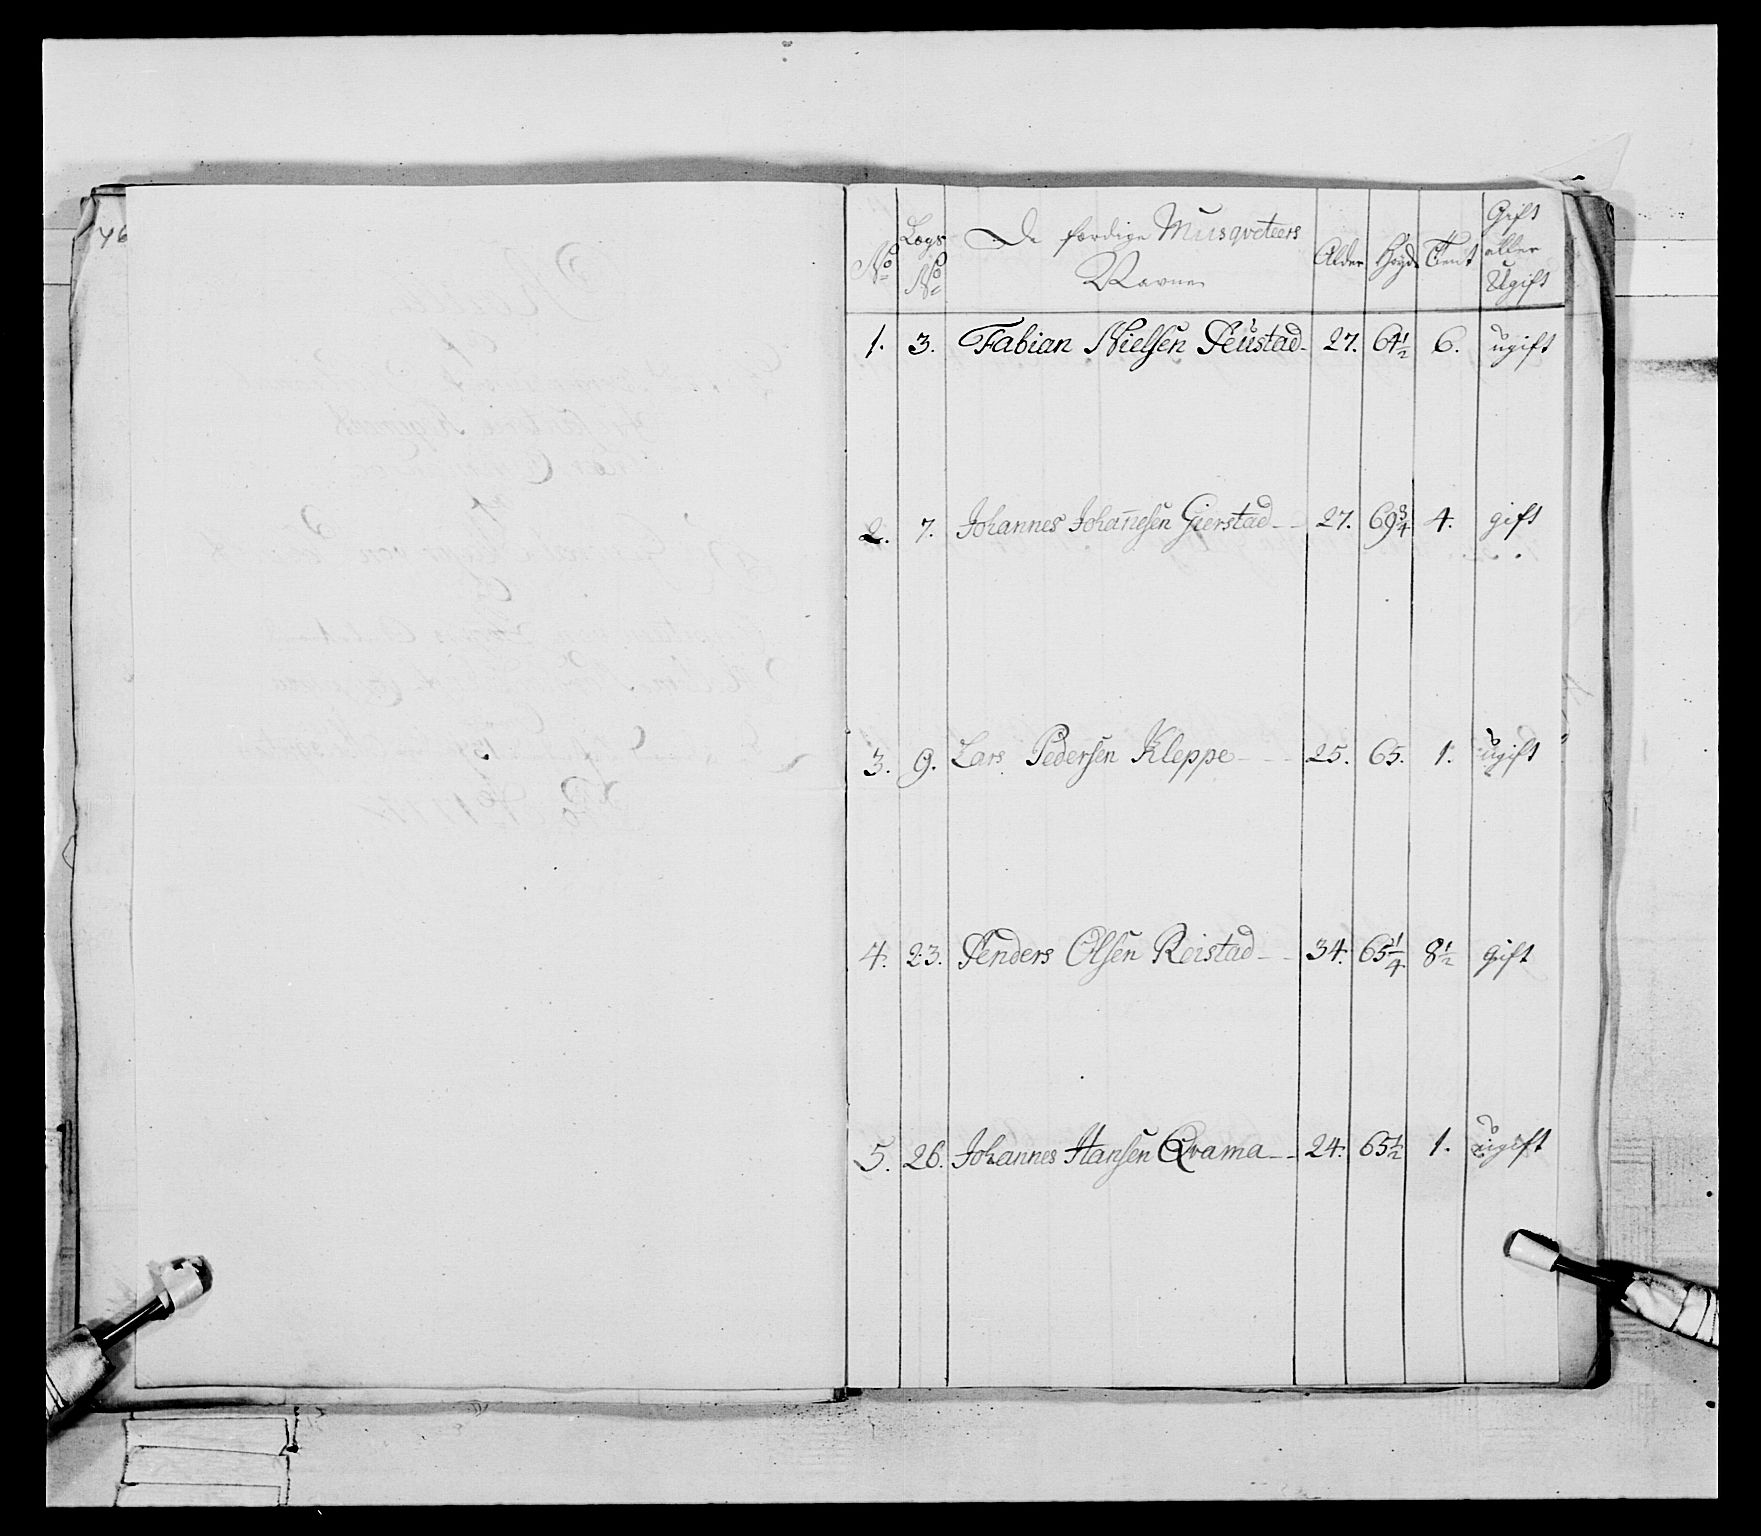 No Lægs No De færdige Musqveteers Navne Alder Høyde Tient Gift eller Ugift
1. 3. Fabian Nielsen 27. 64½ 6. ugift
2. 7. Johannes Johan̄esen Gierstad 27. 69¾ 4. gift
3. 9. Lars Pedersen Kleppe 25. 65. 1. ugift
4. 23. Olsen Reistad 34. 65¼ 8½ gift
5. 26. Johannes Hansen Qvama 24. 65½ 1. ugift